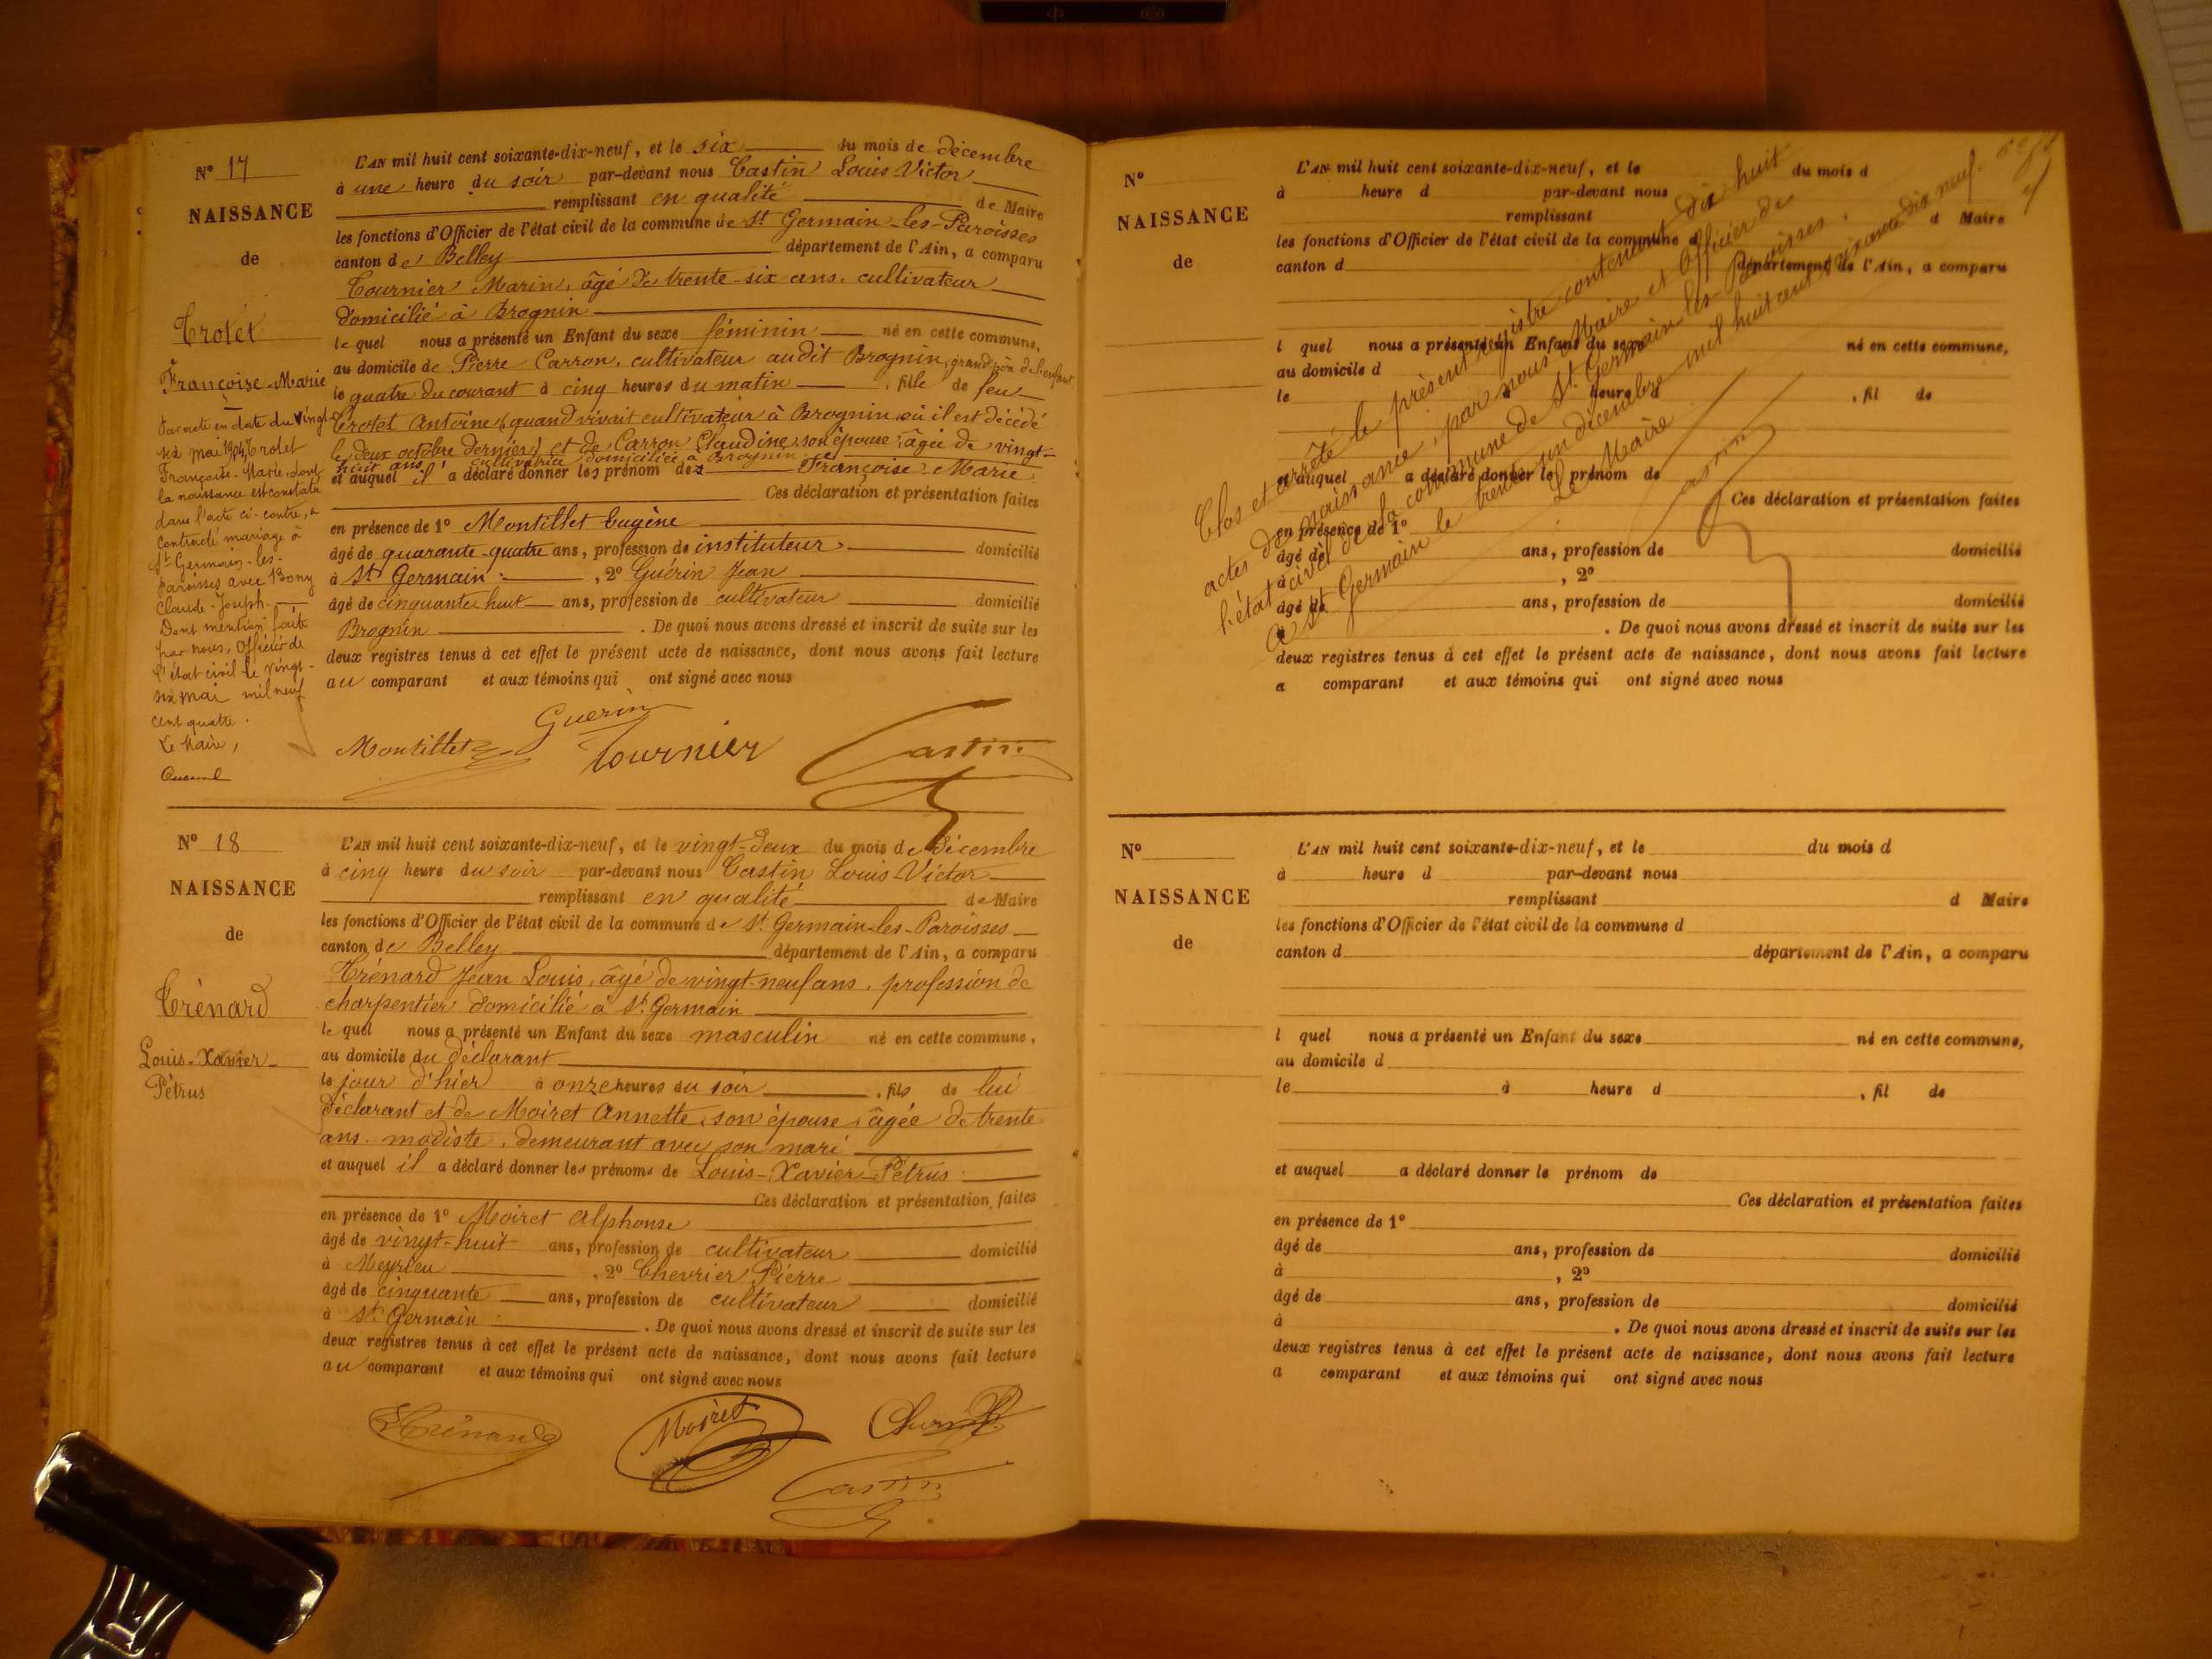 N° 17
NAISSANCE
de
Trolet
Françoise-Marie
Par acte en date du vingt-
six mai 1904, Trolet
Françoise-Marie, dont
la naissance est constatée
dans l'acte ci-contre, a
contracté mariage à
St Germain-les-
Paroisses avec Bony
Claude-Joseph.
Dont mention faite
par nous, Officier de
l'état civil le vingt-
six mai mil neuf
cent quatre.
Le Maire,
L'AN mil huit cent soixante-dix-neuf, et le six du mois de décembre
à une heure du soir par-devant nous Castin Louis Victor
remplissant en qualité de Maire
les fonctions d'Officier de l'état civil de la commune de St Germain-les-Paroisses
canton de Belley département de l'Ain, a comparu
Tournier Marin, âgé de trente-six ans, cultivateur
domicilié à Brognin
le quel nous a présenté un Enfant du sexe féminin né en cette commune,
au domicile de Pierre Carron, cultivateur audit Brognin, grand père de l'enfant
le quatre du courant à cinq heures du matin, fille de feu
Trolet Antoine (quand vivait cultivateur à Brognin où il est décédé
le deux octobre dernier) et de Carron Claudine, son épouse, âgée de vingt-
huit ans, cultivatrice domiciliée à Brognin
et auquel il a déclaré donner les prénom des Françoise Marie
Ces déclaration et présentation faites
en présence de 1° Montillet Eugène
âgé de quarante-quatre ans, profession de instituteur domicilié
à St Germain, 2° Guérin Jean
âgé de cinquante huit ans, profession de cultivateur domicilié
Brognin. De quoi nous avons dressé et inscrit de suite sur les
deux registres tenus à cet effet le présent acte de naissance, dont nous avons fait lecture
au comparant et aux témoins qui ont signé avec nous
Guerin
Montillet Tournier Castin
N° 18
NAISSANCE
de
Trénard
Louis-Xavier-
Pétrus
L'AN mil huit cent soixante-dix-neuf, et le vingt-deux du mois de Décembre
à cinq heure du soir par-devant nous Castin Louis Victor
remplissant en qualité de Maire
les fonctions d'Officier de l'état civil de la commune de St Germain-les-Paroisses
canton de Belley département de l'Ain, a comparu
Trénard Jean Louis, âgé de vingt-neuf ans, profession de
charpentier domicilié à St Germain
le quel nous a présenté un Enfant du sexe masculin né en cette commune,
au domicile du déclarant
le jour d'hier à onze heures du soir, fils de lui
déclarant et de Moiret Annette, son épouse, âgée de trente
ans, modiste, demeurant avec son mari
et auquel il a déclaré donner les prénoms de Louis-Xavier-Pétrus
Ces déclaration et présentation faites
en présence de 1° Moiret Alphonse
âgé de vingt-huit ans, profession de cultivateur domicilié
à Meyrieu, 2° Chevrier Pierre
âgé de cinquante ans, profession de cultivateur domicilié
à St Germain. De quoi nous avons dressé et inscrit de suite sur les
deux registres tenus à cet effet le présent acte de naissance, dont nous avons fait lecture
au comparant et aux témoins qui ont signé avec nous
Trénard Moiret
Castin
N°
NAISSANCE
de
L'AN mil huit cent soixante-dix-neuf, et le du mois d
à heure d par-devant nous
remplissant d Maire
les fonctions d'Officier de l'état civil de la commune d
canton d département de l'Ain, a comparu
l quel nous a présenté un Enfant du sexe né en cette commune,
au domicile d
le à heure d, fil de
et auquel a déclaré donner le prénom de
Ces déclaration et présentation faites
en présence de 1°
âgé de ans, profession de domicilié
à, 2°
âgé de ans, profession de domicilié
à. De quoi nous avons dressé et inscrit de suite sur les
deux registres tenus à cet effet le présent acte de naissance, dont nous avons fait lecture
a comparant et aux témoins qui ont signé avec nous
Clos et arrêté le présent registre contenant dix huit
actes de naissance, par nous Maire et Officier de
l'état civil de la commune de St Germain-les-Paroisses.
A St Germain le trente un décembre mil huit cent soixante dix neuf.
Le Maire
Castin
N°
NAISSANCE
de
L'AN mil huit cent soixante-dix-neuf, et le du mois d
à heure d par-devant nous
remplissant d Maire
les fonctions d'Officier de l'état civil de la commune d
canton d département de l'Ain, a comparu
l quel nous a présenté un Enfant du sexe né en cette commune,
au domicile d
le à heure d, fil de
et auquel a déclaré donner le prénom de
Ces déclaration et présentation faites
en présence de 1°
âgé de ans, profession de domicilié
à, 2°
âgé de ans, profession de domicilié
à. De quoi nous avons dressé et inscrit de suite sur les
deux registres tenus à cet effet le présent acte de naissance, dont nous avons fait lecture
a comparant et aux témoins qui ont signé avec nous